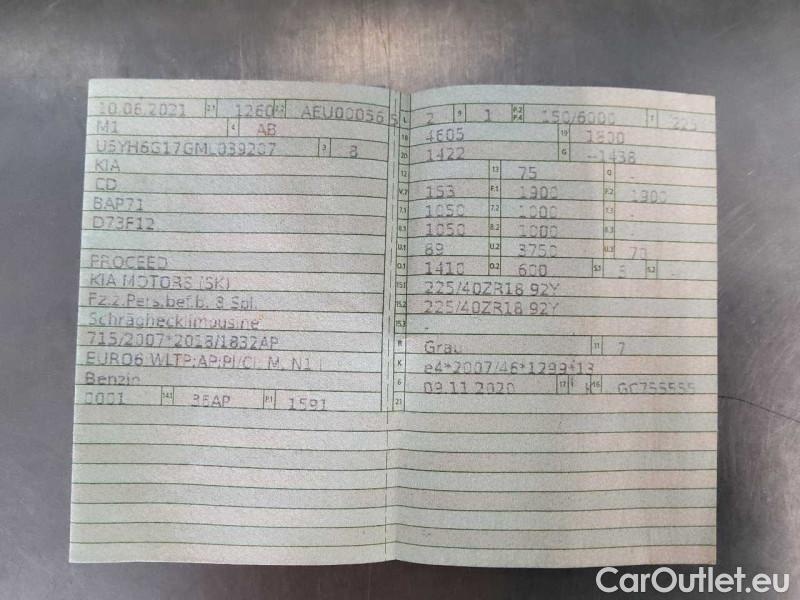 10.06.2021 2.1 1260 2.2 AEU00056 5
M1 4 AB
U5YH6G17GML039207 3 8
KIA
CD
BAP71
D73F12
PROCEED
KIA MOTORS (SK)
Fz.z.Pers.bef.b. 8 Spl.
Schräghecklimousine
715/2007*2018/1832AP
EURO6 WLTP;AP;PI/CI; M, N1 I
Benzin
0001 14.1 36AP P.1 1591
L 2 9 1 P.2 P.4 150/6000 T 225
18 4605 19 1800
20 1422 G --1438
12 13 75 Q
V.7 153 F.1 1900 F.2 1900
7.1 1050 7.2 1000 7.3 -
8.1 1050 8.2 1000 8.3 -
U.1 89 U.2 3750 U.3 70
O.1 1410 O.2 600 S.1 5 S.2 -
15.1 225/40ZR18 92Y
15.2 225/40ZR18 92Y
15.3 -
R Grau 11 7
K e4*2007/46*1299*13
6 09.11.2020 17 K 16 GC755555
21
CarOutlet.eu